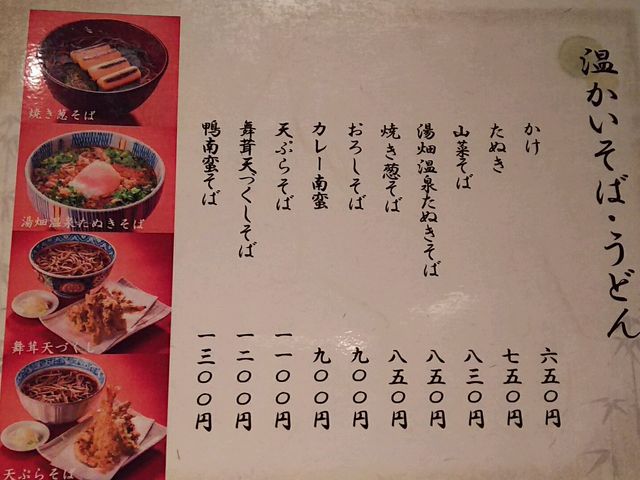 温かいそば・うどん
かけ 六五〇円
たぬき 七五〇円
山菜そば 八三〇円
湯畑温泉たぬきそば 八五〇円
焼き葱そば 八五〇円
おろしそば 九〇〇円
カレー南蛮 九〇〇円
天ぷらそば 一一〇〇円
舞茸天づくしそば 一二〇〇円
鴨南蛮そば 一三〇〇円
焼き葱そば
湯畑温泉たぬきそば
舞茸天づくし
天ぷらそば